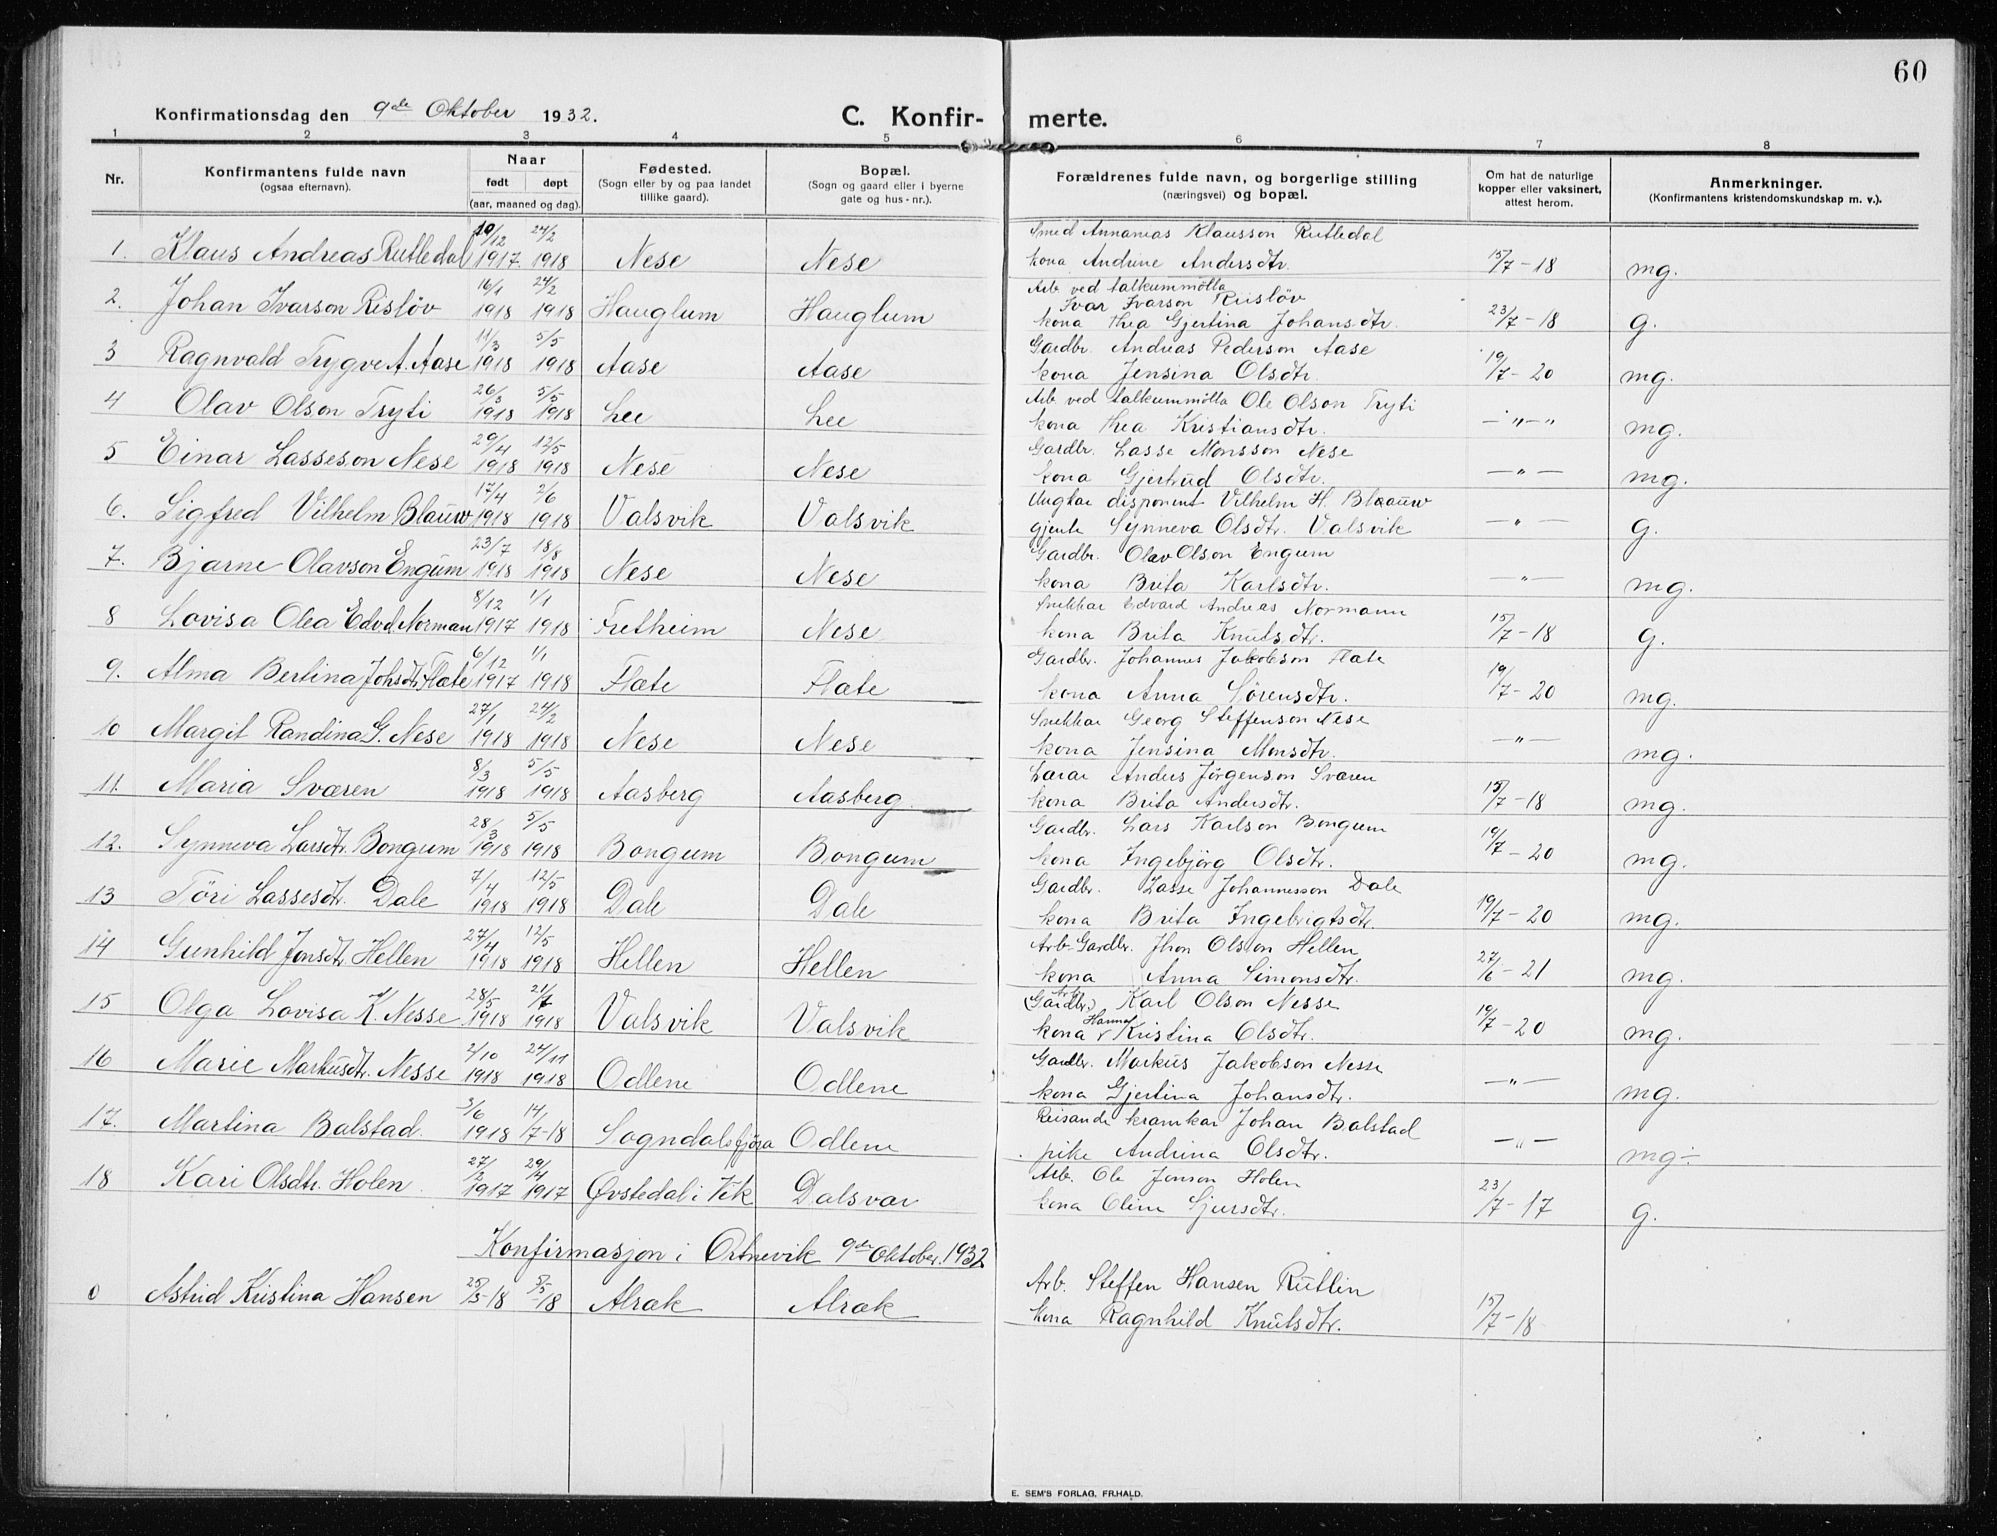 60
Konfirmationsdag den 9de Oktober 1932.
C. Konfir- merte.
1 2 3 4 5 6 7 8
Nr.
Konfirmantens fulde navn
(ogsaa efternavn).
Naar
født døpt
(aar, maaned og dag).
Fødested.
(Sogn eller by og paa landet
tillike gaard).
Bopæl.
(Sogn og gaard eller i byerne
gate og hus-nr.).
Forældrenes fulde navn, og borgerlige stilling
(næringsvei) og bopæl.
Om hat de naturlige
kopper eller vaksinert,
attest herom.
Anmerkninger.
(Konfirmantens kristendomskundskap m. v.).
10/12 24/2 Smed Annanias Klausson Rutledal
1. Klaus Andreas Rutledal 1917. 1918 Nese Nese kona Andrine Andersdtr. 15/7-18 mg.
16/1 24/2 Arb. ved talkummölla
Ivar Ivarson Risløv
2. Johan Ivarson Risløv 1918 1918 Hauglum Hauglum kona Thea Gjertina Johansdtr. 23/7-18 g.
11/3 5/5 Gardbr. Andreas Pederson Aase
3 Ragnvald Trygve A. Aase 1918 1918 Aase Aase kona Jensina Olsdtr. 19/7-20 mg.
26/3 5/5 Arb. ved talkummölla Ole Olson Tryti
4 Olav Olson Tryti 1918 1918 Lee Lee kona Thea Kristiansdtr. -"-" mg.
29/4 12/5 Gardbr. Lasse Monsson Nese
5 Einar Lasseson Nese 1918 1918 Nese Nese kona Gjertrud Olsdtr. -"- mg.
17/4 2/6 Ungkar disponent Vilhelm H. Blaauw
6. Sigfred Vilhelm Blauw 1918 1918 Valsvik Valsvik gjente Synneva Olsdtr. Valsvik -"- g.
23/7 18/8 Gardbr. Olav Olson Engum
7. Bjarne Olavson Engum 1918 1918 Nese Nese kona Brita Karlsdtr. -"- mg.
8/12 1/1 Snekkar Edvard Andreas Normann
8 Lovisa Olea Edvd. Norman 1917 1918 Fretheim Nese kona Brita Knutsdtr. 15/7-18 g.
6/12 1/1 Gardbr. Johannes Jakobson Flate
9. Alma Bertina Johsdtr. Flate 1917 1918 Flate Flate kona Anna Sørensdtr. 19/7-20 mg.
27/1 24/2 Snekkar Georg Steffenson Nese
10 Margit Randina G. Nese 1918 1918 Nese Nese kona Jensina Monsdtr. -"- mg.
8/3 5/5 Lærar Anders Jørgenson Sværen
11. Maria Sværen 1918 1918 Aasberg Aasberg. kona Brita Andersdtr. 15/7-18 mg.
28/3 5/5 Gardbr. Lars Karlson Bongum
12. Synneva Larsdtr. Bongum 1918 1918 Bongum Bongum kona Ingebjørg Olsdtr. 19/7-20 mg.
7/4 12/5 Gardbr. Lasse Johannesson Dale
13 Töri Lassesdtr. Dale 1918 1918 Dale Dale kona Brita Ingebrigtsdtr. 19/7-20 mg.
27/4 12/5 Arb. Gardbr. Jhon Olson Hellen
14 Gunhild Jonsdtr. Hellen 1918 1918 Hellen Hellen kona Anna Simonsdtr. 27/6-21 mg.
28/5 21/7 (Gardbr.) Arb. Karl Olson Nesse
15 Olga Lovisa K. Nesse 1918 1918 Valsvik Valsvik kona Hanna Kristina Olsdtr. 19/7-20 mg.
2/10 24/11 Gardbr. Markus Jakobson Nesse
16 Marie Markusdtr. Nesse 1918 1918 Odlene Odlene kona Gjertina Johansdtr. -"- mg.
3/6 14/7-18 Reisande kramkar Johan Balstad
17. Martina Balstad. 1918 Sogndalsfjøra Odlene pike Andrina Olsdtr. -"- mg÷
27/2 29/4 Arb. Ole Jonson Holen
18 Kari Olsdtr. Holen 1917 1917 Øvstedal i Vik Dalsvar kona Oline Sjursdtr. 23/7-17 g.
Konfirmasjon i Ortnevik 9de Oktober. 1932
0 Astrid Kristina Hansen 25/3-18 5/5-18 Alræk Alræk Arb. Steffen Hansen Rutlin
kona Ragnhild Knutsdtr. 15/7-18
E. SEM'S FORLAG, FR.HALD.